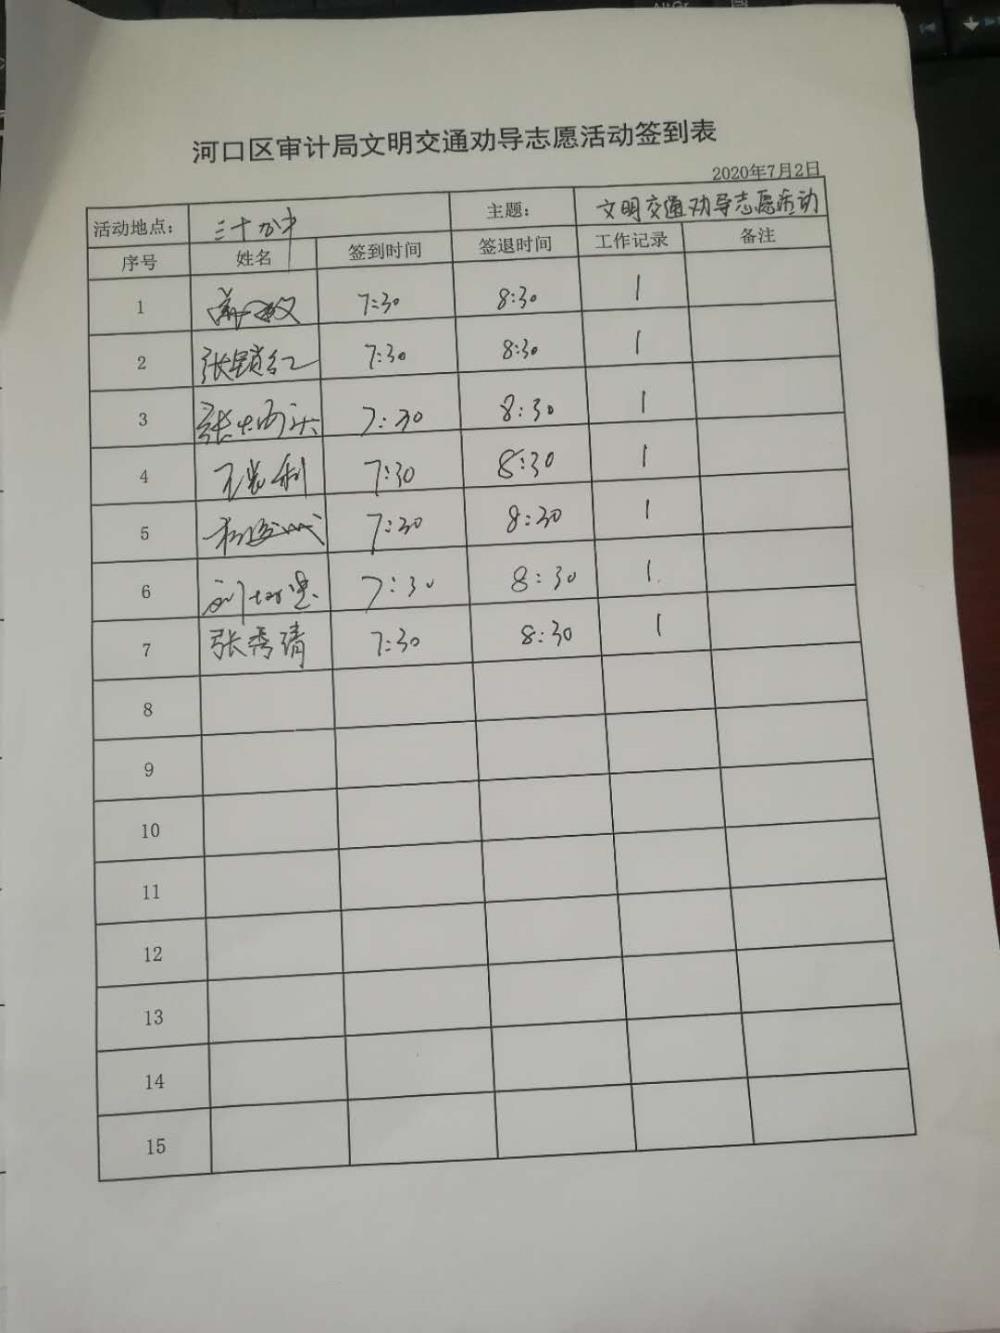 河口区审计局文明交通劝导志愿活动签到表
2020年7月2日
活动地点： 主题： 文明交通劝导志愿活动
序号 姓名 签到时间 签退时间 工作记录 备注
1 7:30 8:30 1
2 张锁红 7:30 8:30 1
3 张 7:30 8:30 1
4 7:30 8:30 1
5 7:30 8:30 1
6 刘 7:30 8:30 1
7 张秀清 7:30 8:30 1
8
9
10
11
12
13
14
15